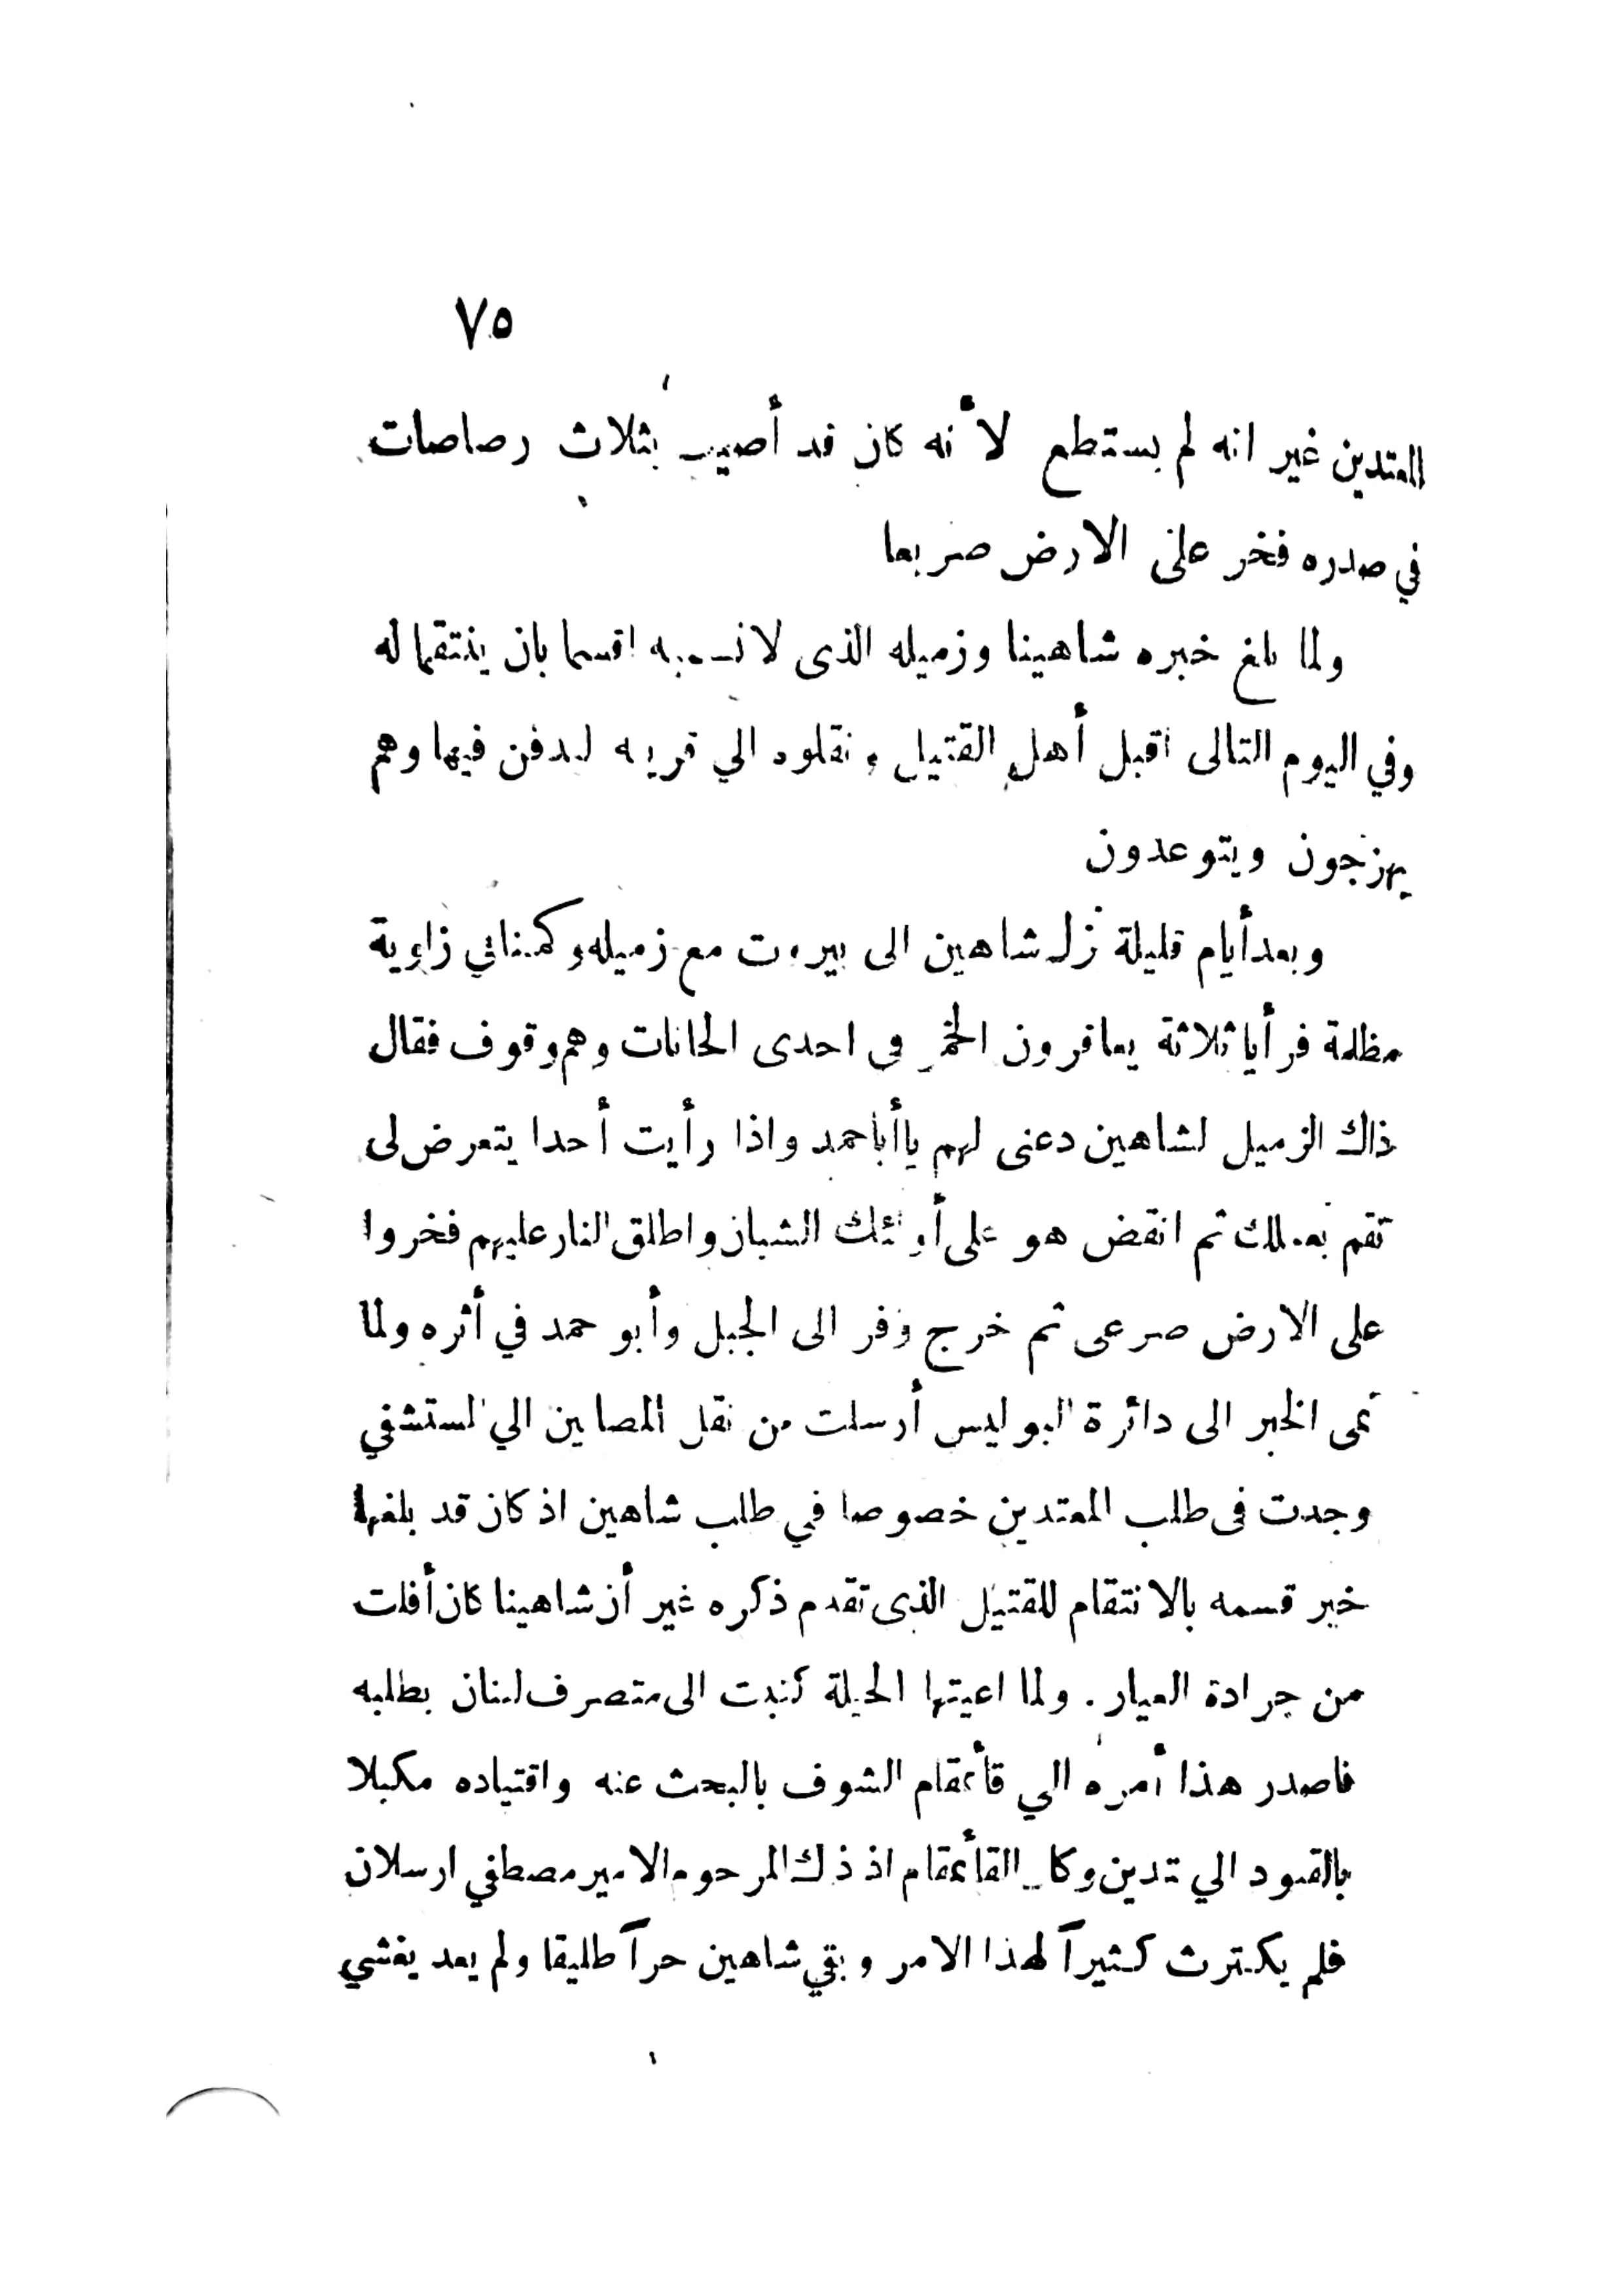 ٧٥
المعتدين غير انه لم يستطع لأنه كان قد أصيب بثلاث رصاصات
في صدره فخر على الارض صريعا
ولما بلغ خبره شاهينا وزميله الذى لا نسميه اقسما بان ينتقما له
وفي اليوم التالى اقبل أهل القتيل ونقلوه الي قريته ليدفن فيها وهم
يهزجون ويتوعدون
وبعد أيام قليلة نزل شاهين الى بيروت مع زميله وكمنا في زاوية
مظلمة فرأيا ثلاثة يعاقرون الخمر فى احدى الحانات وهم وقوف فقال
ذاك الزميل لشاهين دعنى لهم ياأباحمد واذا رأيت أحدا يتعرض لى
تقم بعملك ثم انقض هو على أولئك الشبان واطلق النار عليهم فخروا
على الارض صرعى ثم خرج وفر الى الجبل وأبو حمد في أثره ولما
نمى الخبر الى دائرة البوليس أرسلت من نقل المصابين الي المستشفي
وجدت فى طلب المعتدين خصوصا في طلب شاهين اذ كان قد بلغها
خبر قسمه بالانتقام للقتيل الذى تقدم ذكره غير أن شاهينا كان أفلت
من جرادة العيار . ولما اعيتها الحيلة كتبت الى متصرف لبنان بطلبه
فاصدر هذا أمره الي قأئمقام الشوف بالبحث عنه واقتياده مكبلا
بالقيود الي تدين وكان القأئمقام اذ ذك المرحوم الامير مصطفي ارسلان
فلم يكترث كثيراً لهذا الامر وبقي شاهين حراً طليقا ولم يعد يغشي